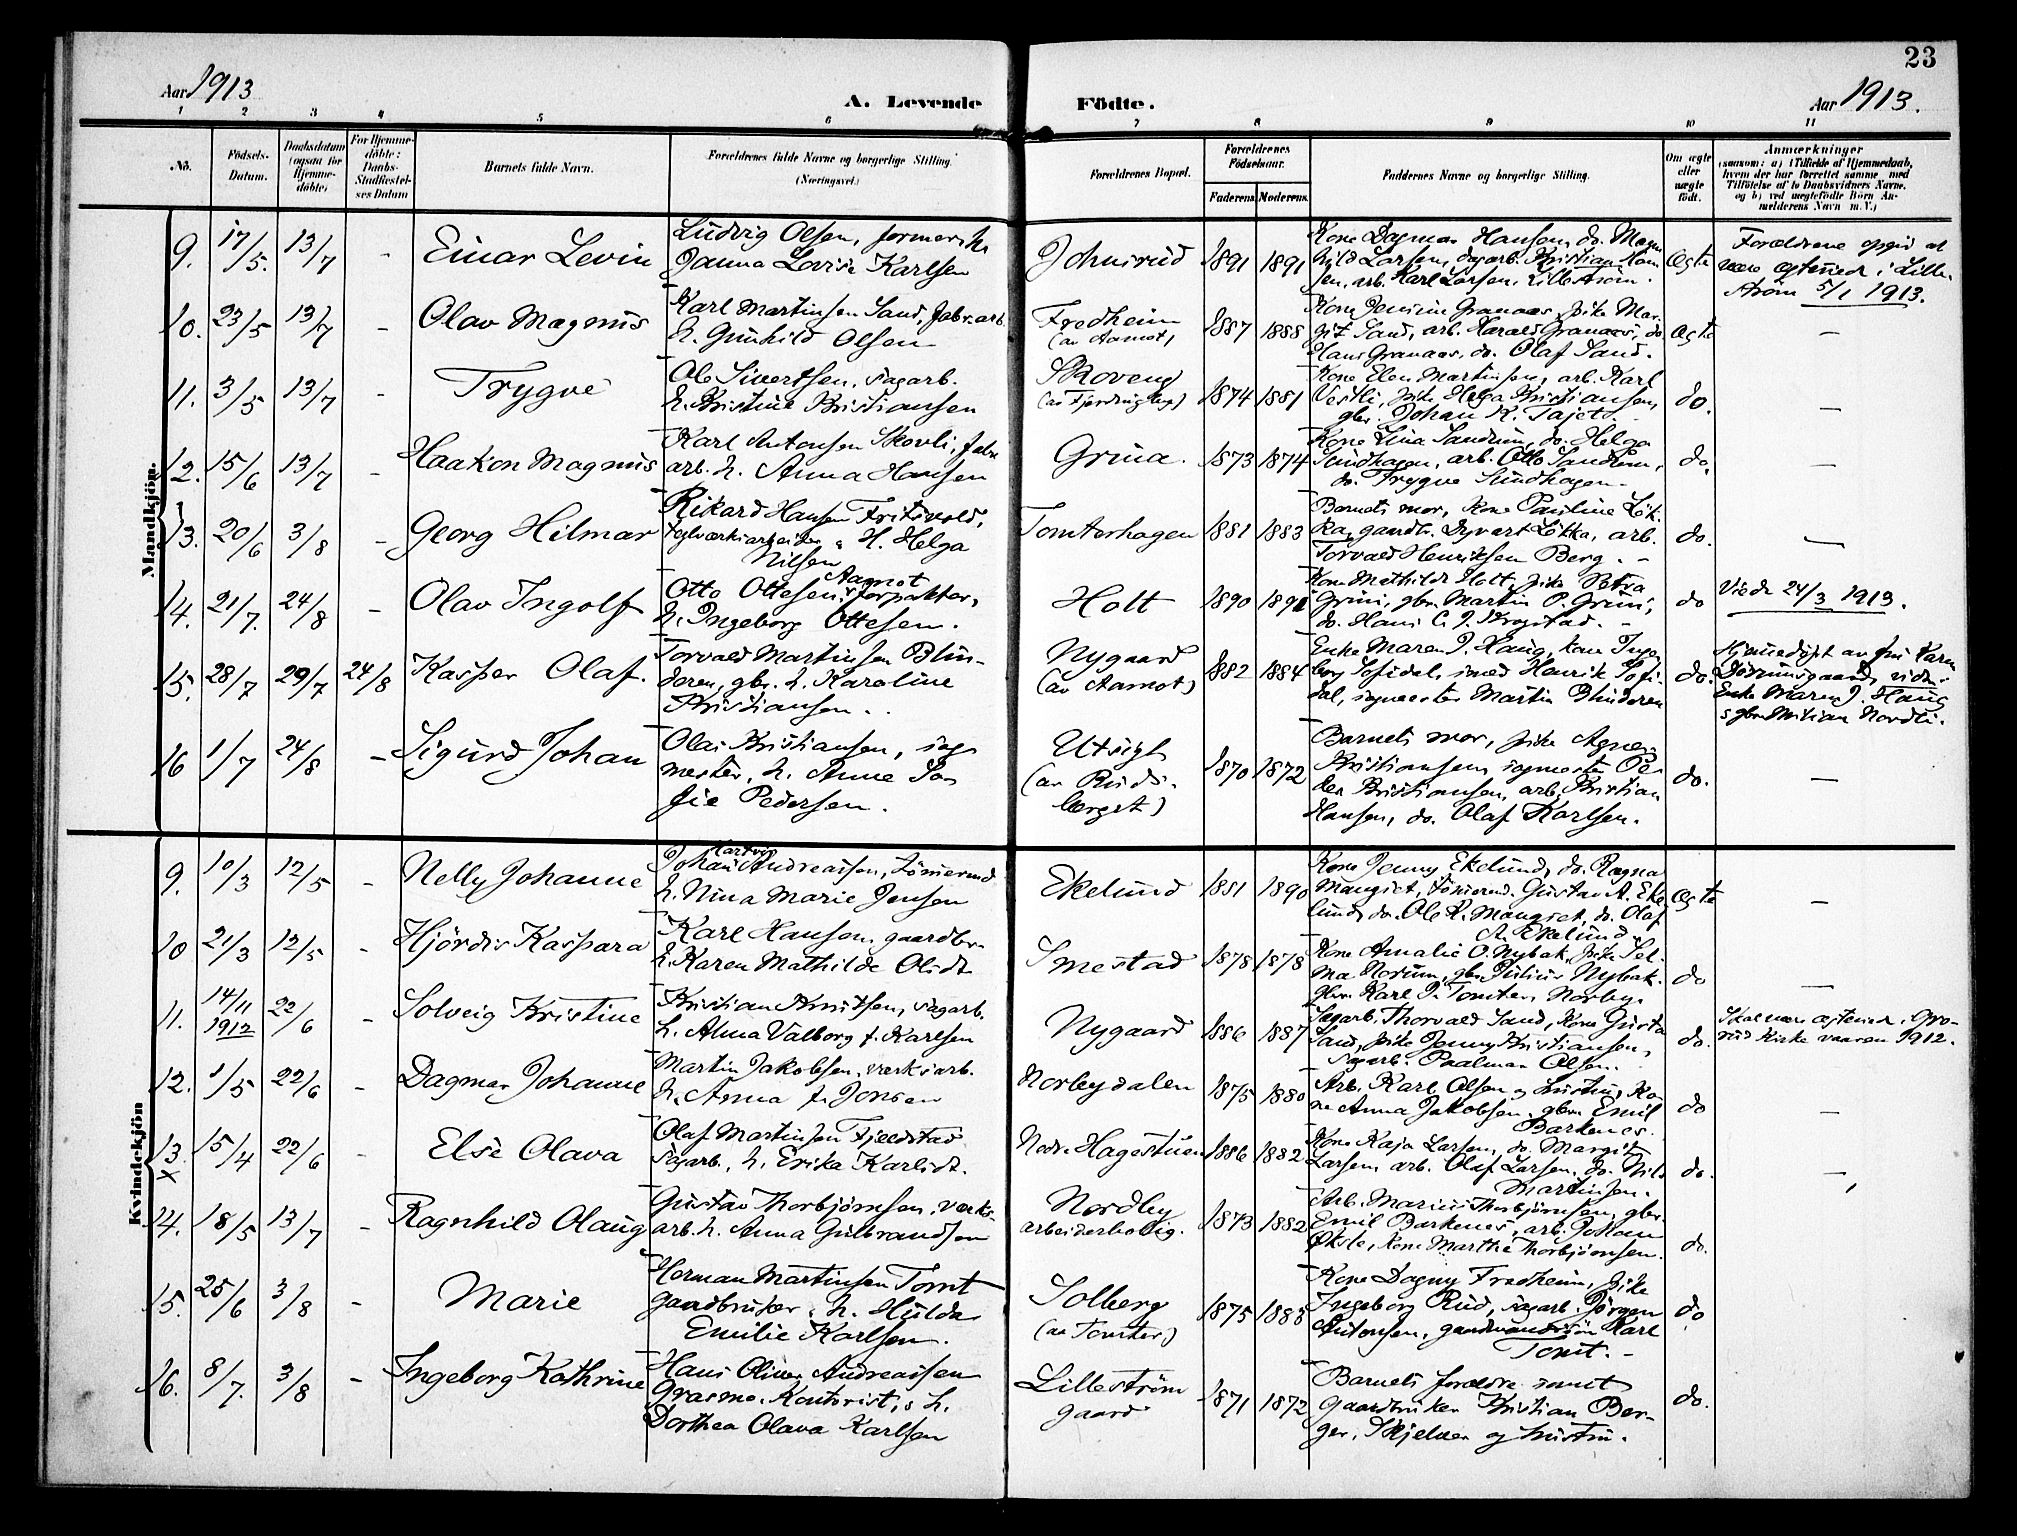 23
Aar 1913
A. Levende
Födte.
Aar 1913.
1 2 3 4 5 6 7 8 9 10 11
No.
Födsels-
Datum.
Daabsdatum
(ogsaa for
Hjemme-
döbte)
For Hjemme-
döbte:
Daabs-
Stadfæstel-
ses Datum
Barnets fulde Navn.
Forældrenes fulde Navne og borgerlige Stilling.
(Næringsvei.)
Forældrenes Bopæl.
Forældrenes
Födselsaar.
Faderens Moderens
Faddernes Navne og borgerlige Stilling.
Om ægte
eller
uægte
födt.
Anmærkninger
(saasom: a) i Tilfælde af Hjemmedaab,
hvem der har forrettet samme med
Tilföielse af to Daabsvidners Navne,
og b) ved uægtefödte Börn An-
melderens Navn m. V.)
Mandkjön.
9. 17/5. 13/7 - Einar Levin
Ludvig Olsen, former, h.
Janna Lovise Karlsen
Johnsrud 1891 1891
Kone Dagmar Hansen, do. Magn
hild Larsen, dagarb. Kristian Han
sen, arb. Karl Larsen, Lilleström.
Ægte
Forældrene opgir at
være egteviet i Lille-
ström 5/1 1913.
10. 23/5 13/7 - Olav Magnus
Karl Martinsen Sand, fabr.arb.
h. Gunhild Olsen
Fredheim
(av Aamot)
1887 1888
Kone Jensine Granaas, pike Mar-
git Sand, arb. Harald Granaas, do
Hans Granaas, do. Olaf Sand.
Ægte -
11. 3/5 13/7 - Trygve
Ole Sivertsen, sagarb.
h. Kristine Kristiansen
Skoveng
(av Fjerdingby)
1874 1881
Kone Elen Martinsen, arb. Karl
Vestli, pike Helga Kristiansen,
gbr. Johan K. Tajet.
do. -
12. 15/6 13/7 - Haakon Magnus
Karl Antonsen Skovli, fabr
arb. h. Anna Hansen
Grina. 1873 1874
Kone Lina Sandum, do. Helga
Sundhagen, arb. Otto Sandum,
do. Trygve Sundhagen.
do. -
13. 20/6 3/8 - Georg Hilmar
Rikard Hansen Fritsvold,
teglværksarbeider, H. Helga
Nilsen
Tomterhagen 1881 1883
Barnets mor, kone Pauline Lök-
ka, gaardbr. Syvert Lökka, arb.
Torvald Henriksen Berg. -
do. -
14. 21/7. 24/8 - Olav Ingolf
Otto Ottesen Aamot, forpakter,
h. Ingeborg Ottesen.
Holt 1890 1891
Kone Mathilde Holt, pike Petra
Grini, gbr. Martin P. Grini,
do. Hans C. J. Krogstad. -
do Viede 24/3 1913.
15. 28/7 29/7 24/8 Kasper Olaf.
Torvald Martinsen Blin-
deren, gbr. h. Karoline
Kristiansen.
Nygaard
(av Aamot)
1882 1884
Enke Maren J. Haug, kone Inge
borg Sofidal, smed Henrik Sofi-
dal, sagmester Martin Blinderen
do.
Hjemmedöpt av fru Karen
vidn:
Enke Maren J. Haug
Nordli.
16 1/7 24/8 - Sigurd Johan
Olai Kristiansen, sag
mester, h. Anne So
fie Pedersen.
Utsigt
(av Ruds-
berget)
1870 1872
Barnets mor, pike Agnes
Kristiansen, sagmester Pe
der Kristiansen, arb. Kristian
Hansen, do. Olaf Karlsen.
do. -
Kvindekjön
9. 10/3 12/5 - Nelly Johanne
Johan Hartvig Andreassen, tömmermd
h. Nina Marie Jensen
Ekelund 1881 1890
Kone Jenny Ekelund, do. Ragna
Mangset, tömmermd. Gustav A. Eke
lund, do. Ole R. Mangset, do. Olaf
A. Ekelund -
Ægte -
10 21/3 12/5 - Hjördis Kaspara
Karl Hansen, gaardbr.
h. Karen Mathilde Olsdt.
Smestad 1878 1878
Kone Amalie O. Nybak, pike Sel-
ma Norum, gbr. Julius Nybak.
gbr. Karl P. Tomter, Norby.
do -
11. 14/11 1912 22/6 - Solveig Kristine
Kristian Knutsen, sagarb.
h. Alma Valborg f. Karlsen
Nygaard 1886 1887
Sagarb. Thorvald Sand, kone Gusta
Sand, pike Jenny Kristiansen,
sagarb. Paalman Olsen.
do.
Skal være egteviet i Gro-
rud Kirke vaaren 1912.
12. 1/5 22/6 - Dagmar Johanne
Martin Jakobsen, verksarb.
h. Anna f. Jonsen
Norbydalen 1875 1880
Arb. Karl Olsen og hustru, Ko-
ne Anna Jakobsen, gbr. Emil
Barkenes.
do -
13. x 15/4 22/6 - Else Olava
Olaf Martinsen Fjeldstad
sagarb., h. Erika Karlsdt.
Nedre Hagestuen 1886 1882
Kone Kaja Larsen, do. Margit
Larsen, arb. Olaf Larsen, do. Nils
Martinsen.
do. -
14. 18/5 13/7 - Ragnhild Olaug
Gustav Thorbjörnsen, verks-
arb. h. Anna Gulbrandsen
Nordby
arbeiderbolig.
1873 1882
Arb. Marius Thorbjörnsen, gbr.
Emil Barkenes, arb. Johan
Økste, kone Marthe Thorbjörnsen.
do.
15. 25/6 3/8 - Marie
Herman Martinsen Tomt
gaardbruker, h. Hulda
Emilie Karlsen.
Solberg
(av Tomter)
1875 1888
Kone Dagny Fredheim, pike
Ingeborg Rud, sagarb. Jörgen
Antonsen, gaardmandssön Karl
Tomt. -
do
16. 8/7. 3/8 - Ingeborg Kathrine
Hans Oliver Andreassen
Grasmo, Kontorist, h.
Dorthea Olava Karlsen
Lilleström
gaard
1871 1872
Barnets forældre samt
gaardbruker Kristian Ber-
ger, Skjetten og hustru.
do.